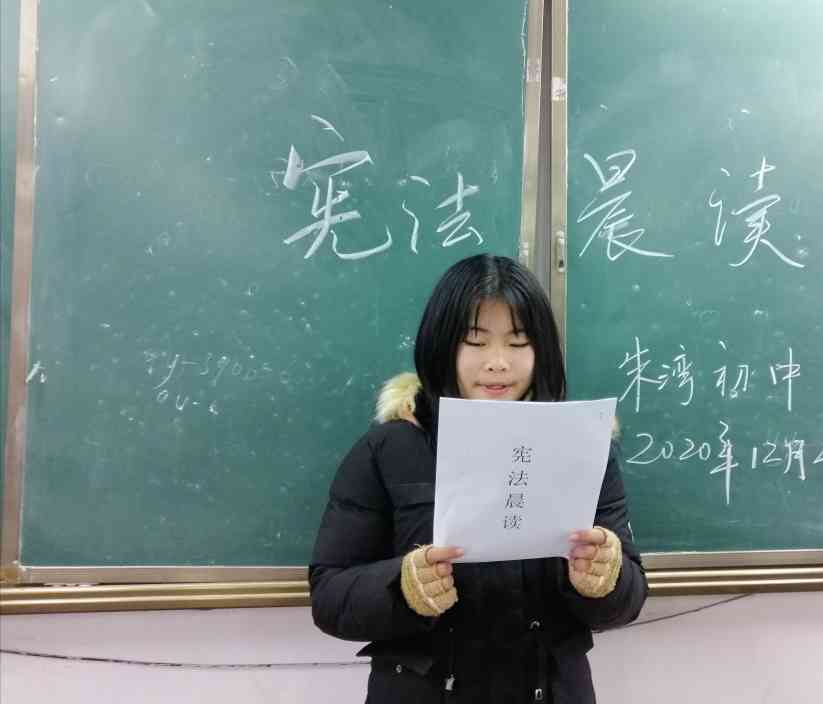 宪法晨读
朱湾初中
2020年12月
宪法晨读